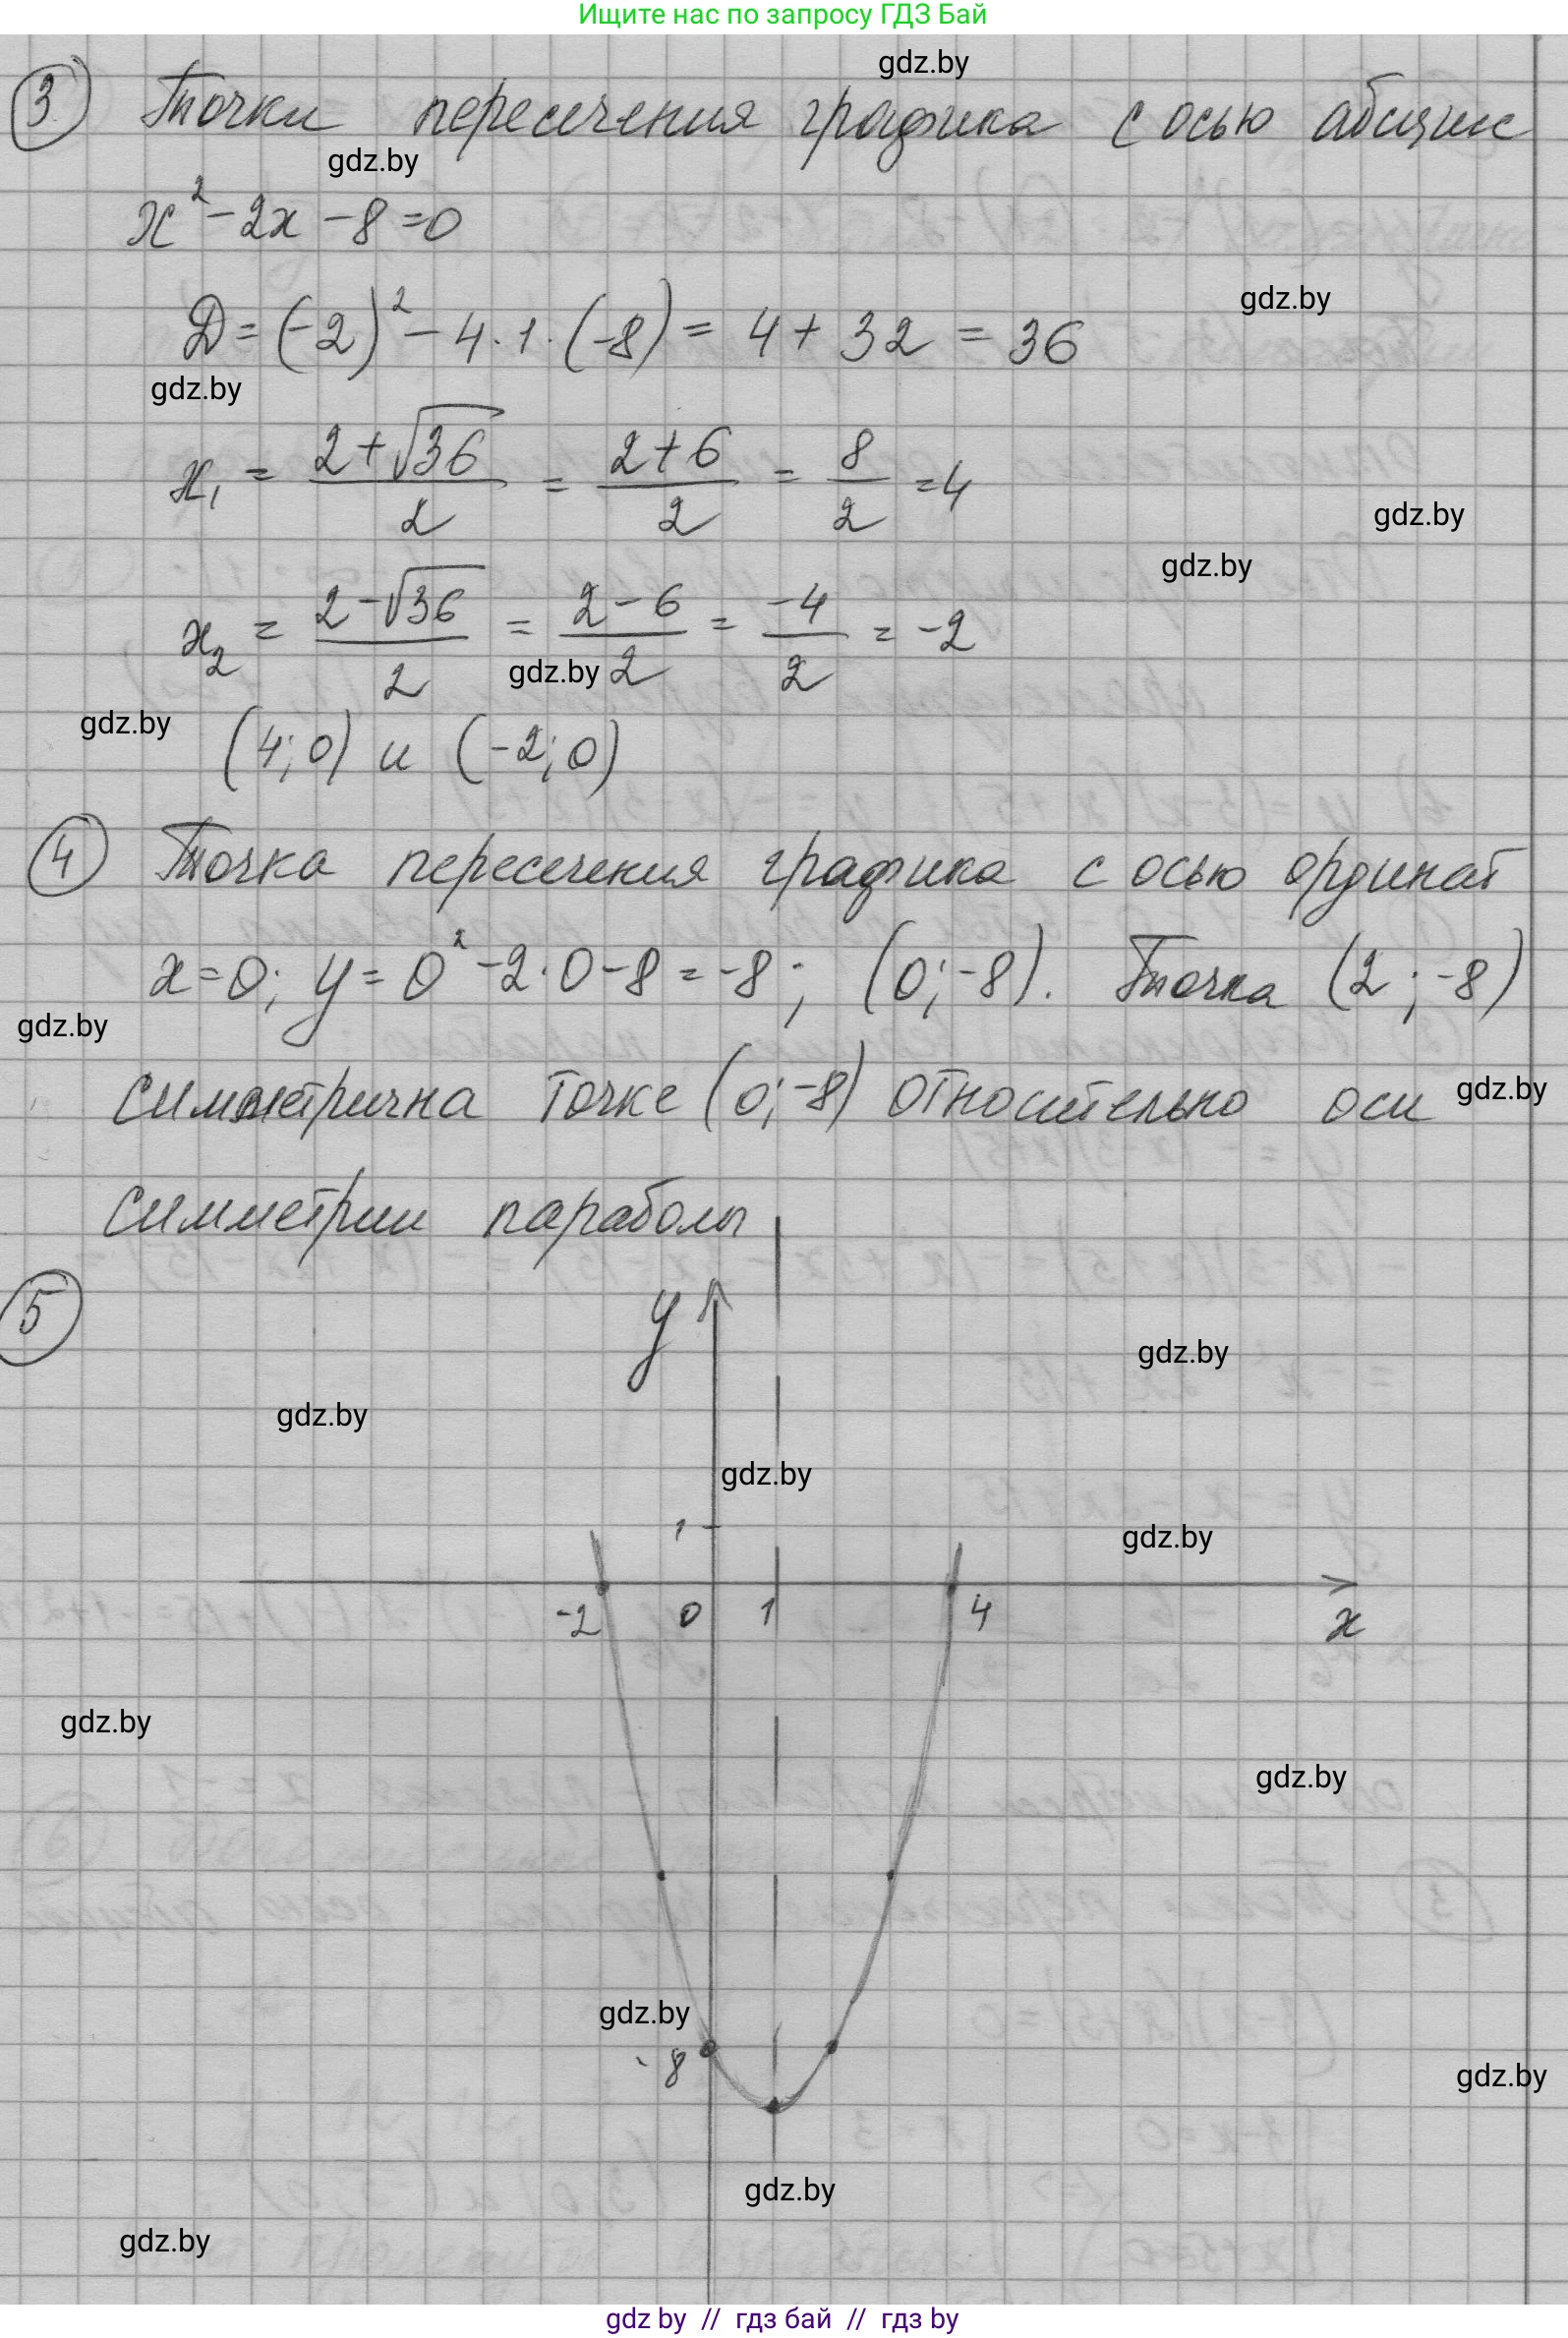 Ищите нас по запросу ГДЗ Бай
gdz.by
③ Точки пересечения графика с осью абсцисс
gdz.by
x² - 2x - 8 = 0
gdz.by
D = (-2)² - 4 · 1 · (-8) = 4 + 32 = 36
gdz.by
x₁ = (2+√36)/2 = (2+6)/2 = 8/2 = 4
gdz.by
gdz.by
x₂ = (2-√36)/2 = (2-6)/2 = -4/2 = -2
gdz.by
gdz.by
(4; 0) и (-2; 0)
④ Точка пересечения графика с осью ординат
x = 0; y = 0² - 2 · 0 - 8 = -8; (0; -8). Точка (2; -8)
gdz.by
симметрична точке (0; -8) относительно оси
gdz.by
симметрии параболы
⑤
y
gdz.by
gdz.by
gdz.by
1
gdz.by
-2 0 1 4 x
gdz.by
gdz.by
gdz.by
-8
gdz.by
gdz.by
gdz.by
gdz by // гдз бай // гдз by